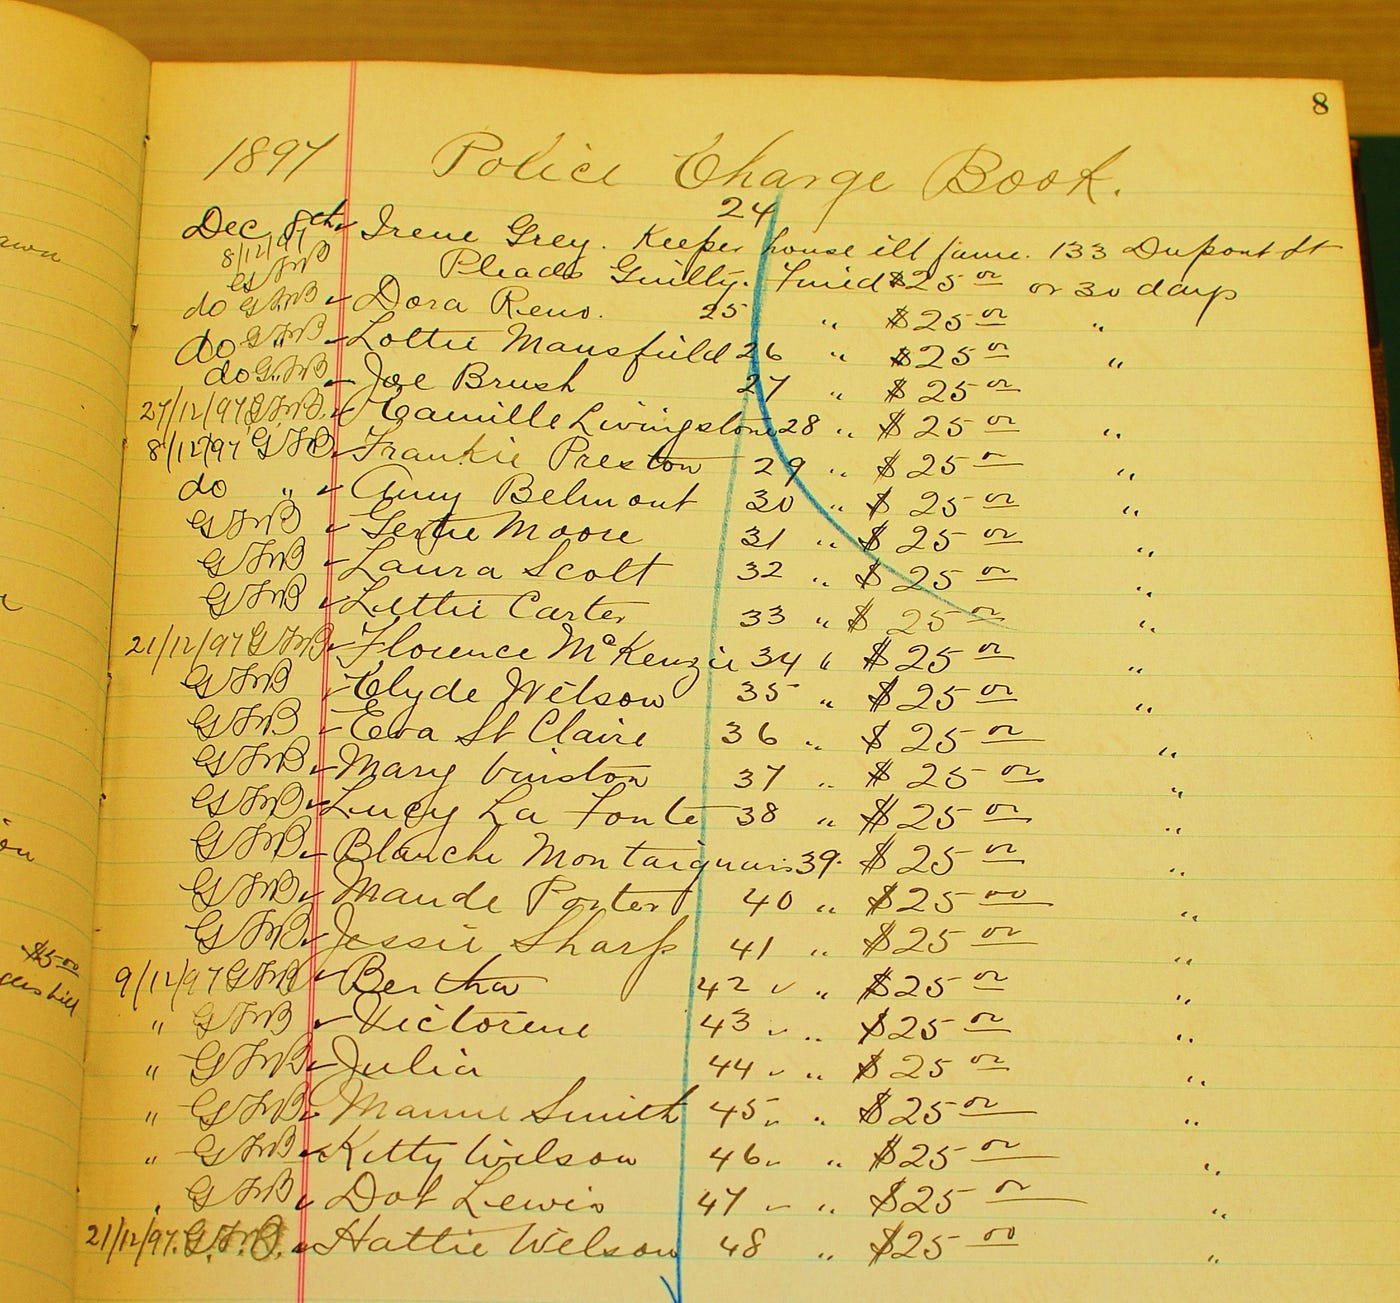 8
1897 Police Charge Book.
24
Dec 8th Irene Grey. Keeper house ill fame. 133 Dupont St
8/12/97
GFMB Pleads Guilty. Fined $25 00 or 30 days
do GFMB Dora Reno. 25 " $25 00 "
do " Lottie Mansfield 26 " $25 00 "
do GFMB Joe Brush 27 " $25 00
27/12/97 GFMB Camille Livingstone 28 " $25 00 "
8/12/97 GFMB Frankie Preston 29 " $25 00 "
do " Amy Belmont 30 " $25 00 "
GFMB Gertie Moore 31 " $25 00 "
GFMB Laura Scott 32 " $25 00 "
GFMB Lettie Carter 33 " $25 00 "
21/12/97 GFMB Florence McKenzie 34 " $25 00 "
GFMB Clyde Wilson 35 " $25 00 "
GFMB Eva St Claire 36 " $25 00 "
GFMB Mary Vinston 37 " $25 00 "
GFMB Lucy La Fonte 38 " $25 00 "
GFMB Blanche 39. $25 00 "
GFMB Maude Porter 40 " $25 00 "
GFMB Jessie Sharp 41 " $25 00 "
9/12/97 GFMB Bertha 42 " $25 00 "
" GFMB Victorene 43 " $25 00 "
" GFMB Julia 44 " $25 00 "
" GFMB Mamie Smith 45 " $25 00 "
" GFMB Kitty Wilson 46 " $25 00 "
" GFMB Dot Lewis 47 " $25 00 "
21/12/97. G.F.M.B. Hattie Wilson 48 " $25 00 "
$5.00